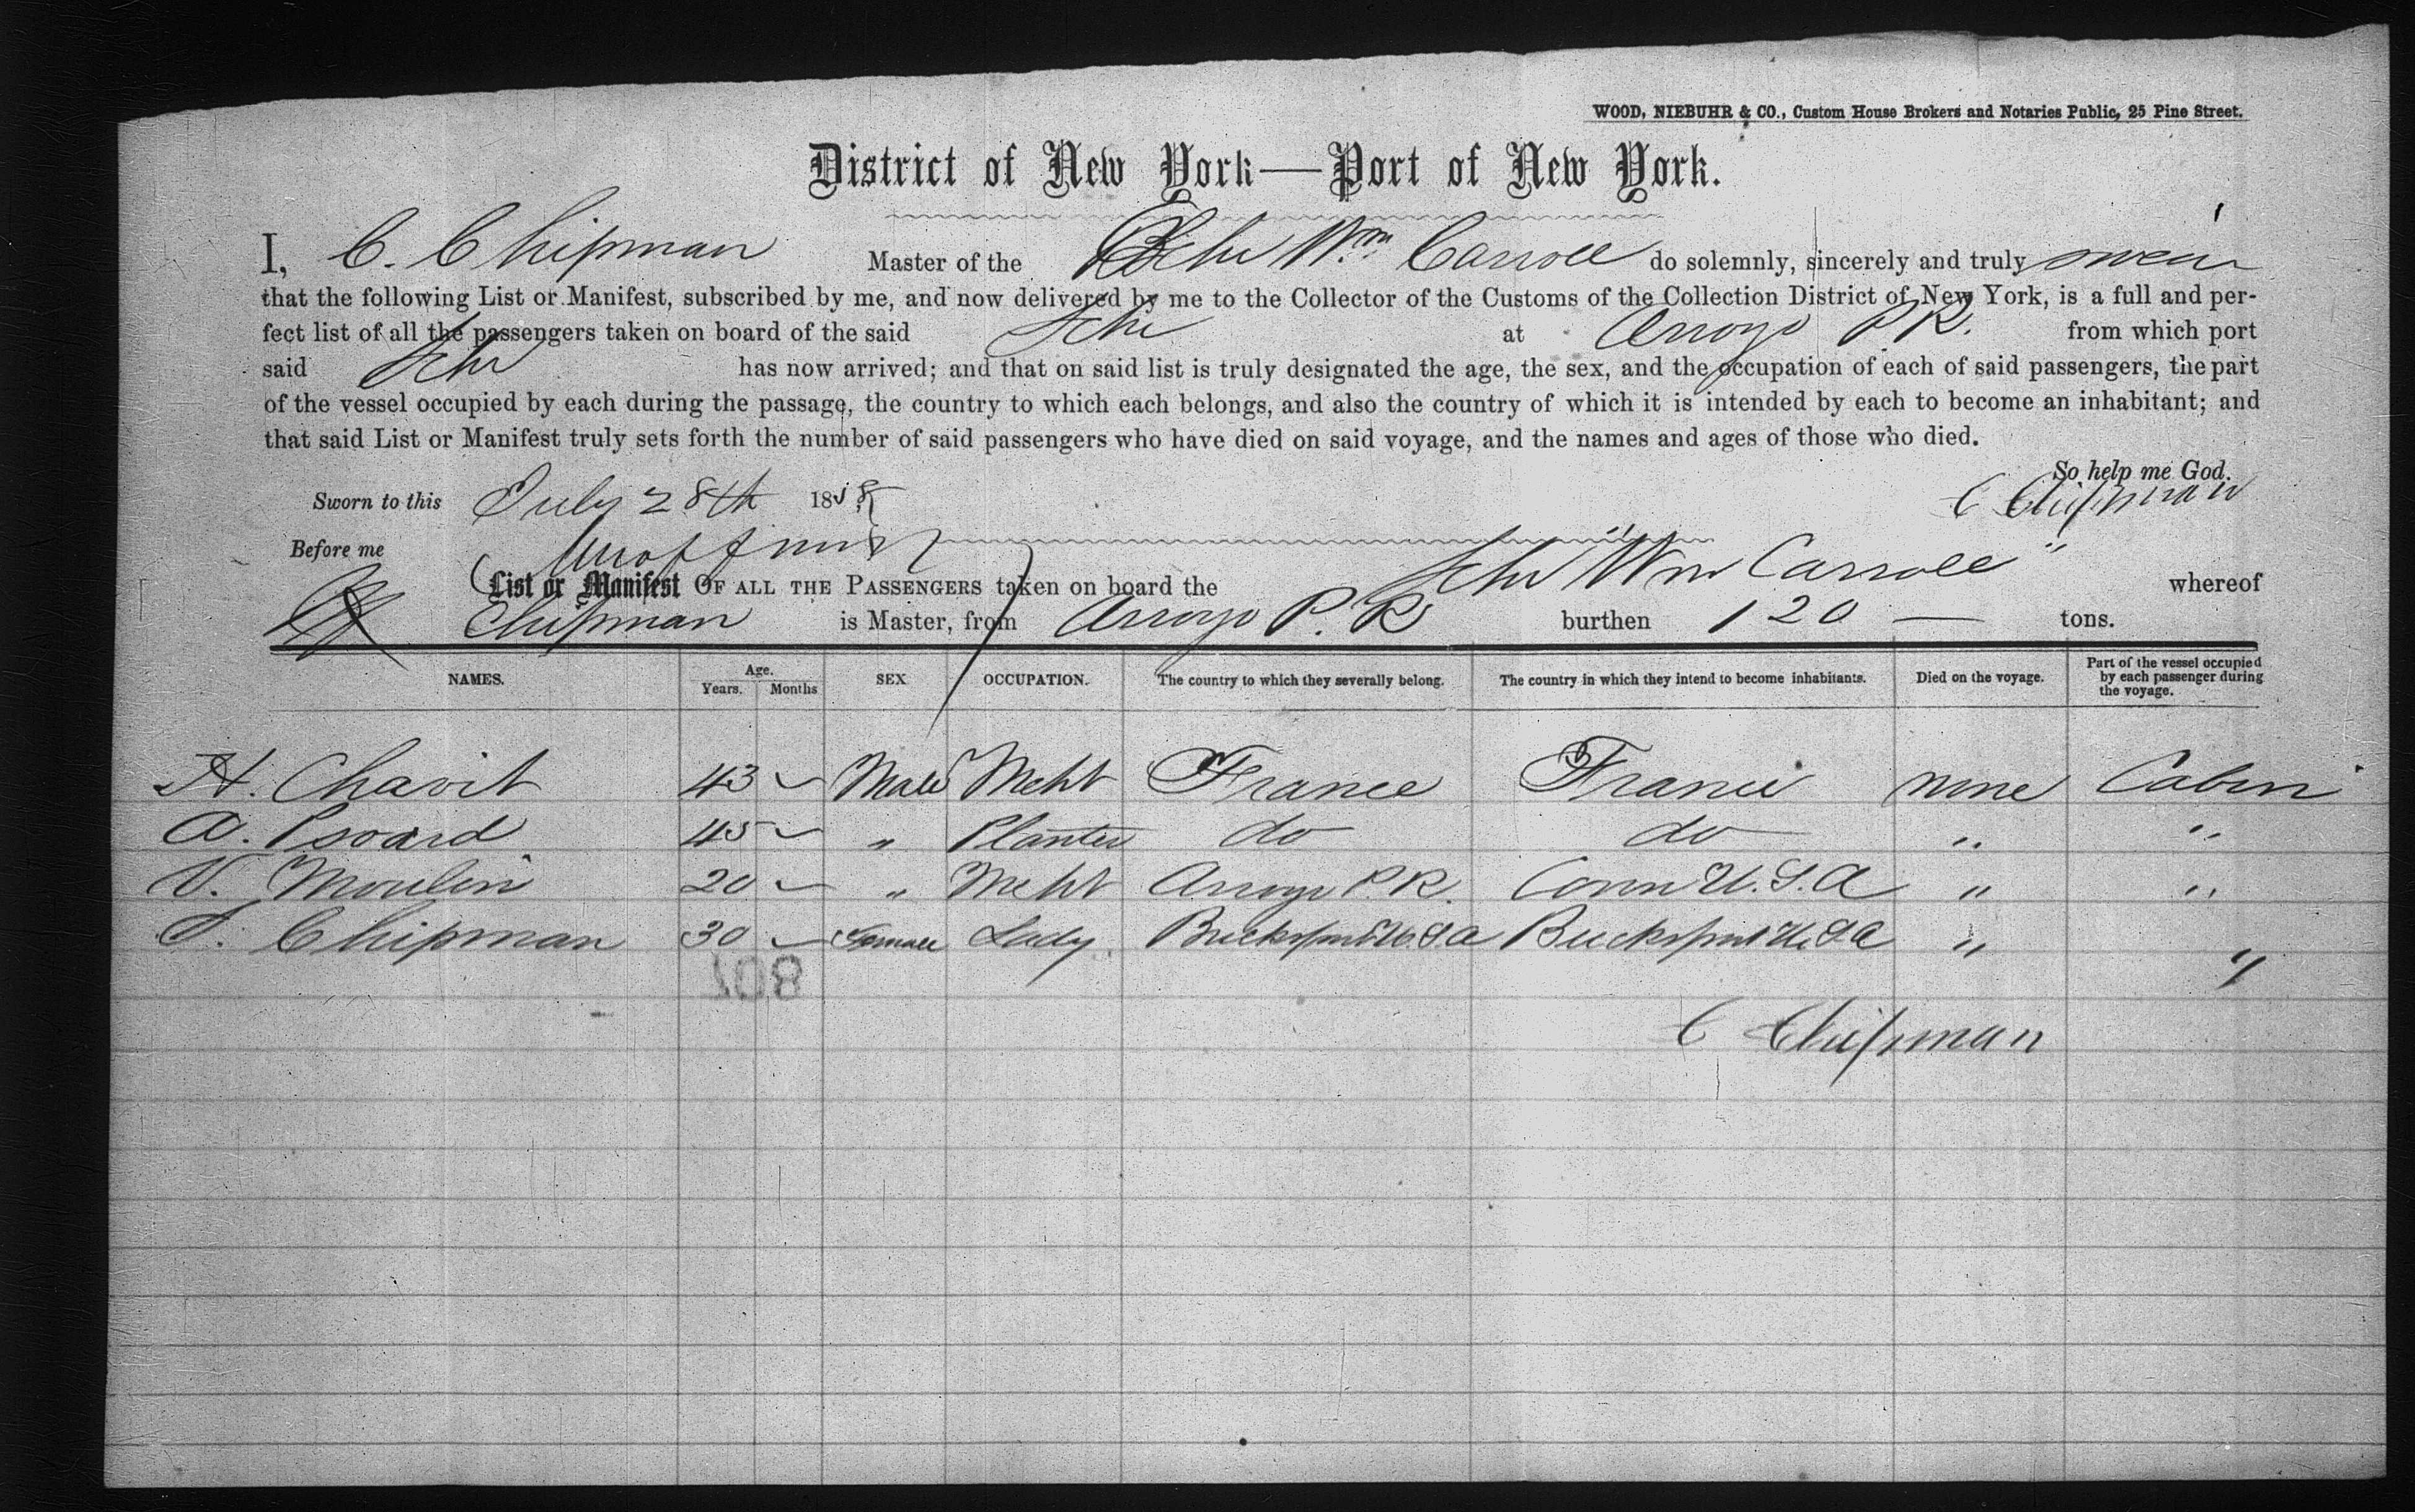 WOOD, NIEBUHR & CO., Custom House Brokers and Notaries Public, 25 Pine Street.
District of New York—Port of New York.
I, C. Chipman Master of the Schr Wm. Carroll do solemnly, sincerely and truly swear
that the following List or Manifest, subscribed by me, and now delivered by me to the Collector of the Customs of the Collection District of New York, is a full and per-
fect list of all the passengers taken on board of the said Schr at Arroyo P.R. from which port
said Schr has now arrived; and that on said list is truly designated the age, the sex, and the occupation of each of said passengers, the part
of the vessel occupied by each during the passage, the country to which each belongs, and also the country of which it is intended by each to become an inhabitant; and
that said List or Manifest truly sets forth the number of said passengers who have died on said voyage, and the names and ages of those who died.
So help me God.
Sworn to this July 28th 18 C Chipman
Before me
List or Manifest OF ALL THE PASSENGERS taken on board the Schr "Wm Carroll" whereof
Chipman is Master, from Arroyo P. R burthen 120 — tons.
NAMES. Age. Years. Months SEX OCCUPATION. The country to which they severally belong. The country in which they intend to become inhabitants. Died on the voyage. Part of the vessel occupied by each passenger during the voyage.
H. Chavit 43 Male Mcht France France none Cabin
A. 45 " Planter do do " "
V. Moulin 20 " Mcht Arroyo P.R. Conn U.S.A " "
S. Chipman 30 Female Lady Bucksport U.S.A Bucksport U.S.A " "
801
C Chipman